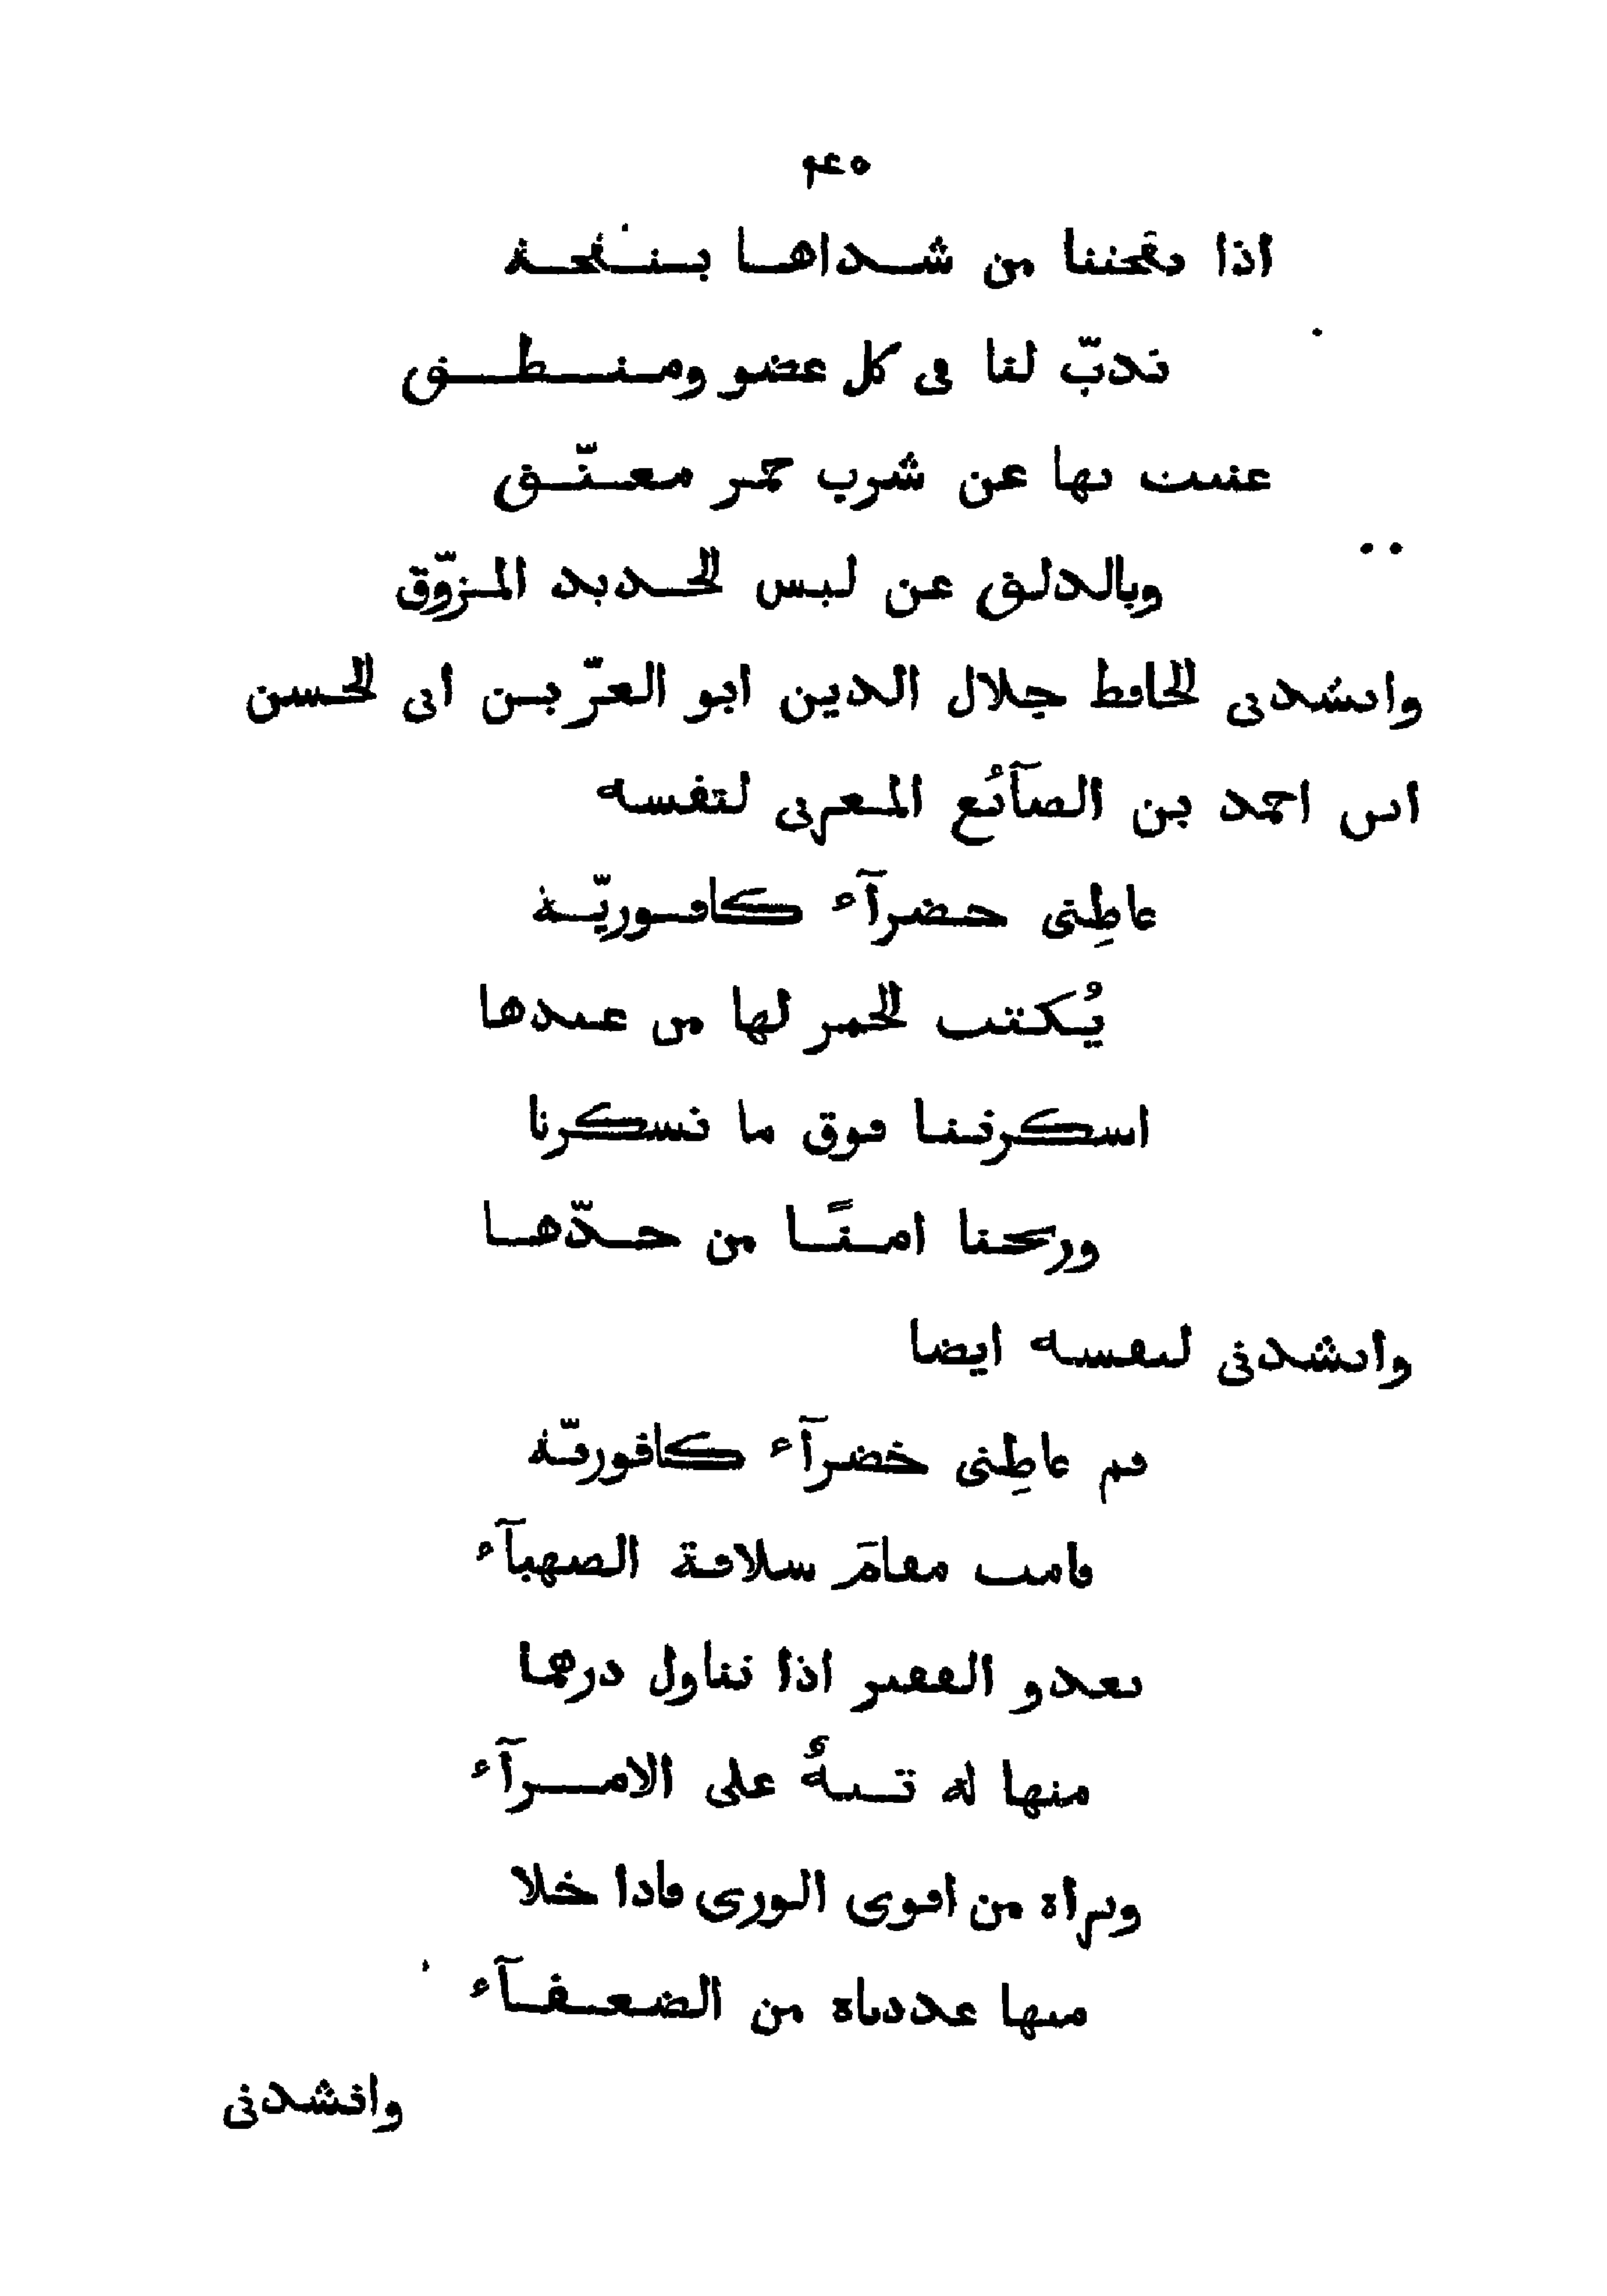 ٤٥
اذا نفحتنا من شداها بنفحة
تدبّ لنا فى كل عضو ومنطق
غنيت بها عن شرب خمر معتّق
وبالدلق عن لبس الحديد المزوّق
وانشدنى الحافظ جلال الدين ابو العزّ بن ابى الحسن
ابن احمد بن الصآئُع المعربى لنفسه
عاطِنى خضرآء كافوريّة
يُكتب الخمر لها من عندها
اسكرتنا فوق ما تسكرنا
وربحنا امنًا من حدّها
وانشدنى لنفسه ايضا
قم عاطِنى خضرآء كافوريّة
قامت مقامَ سلافة الصهبآء
يغدو الفقير اذا تناول درهما
منها له تيهٌ على الامرآء
وتراه من اقوى الورى فاذا خلا
منها عددناه من الضعفآء
وانشدنى